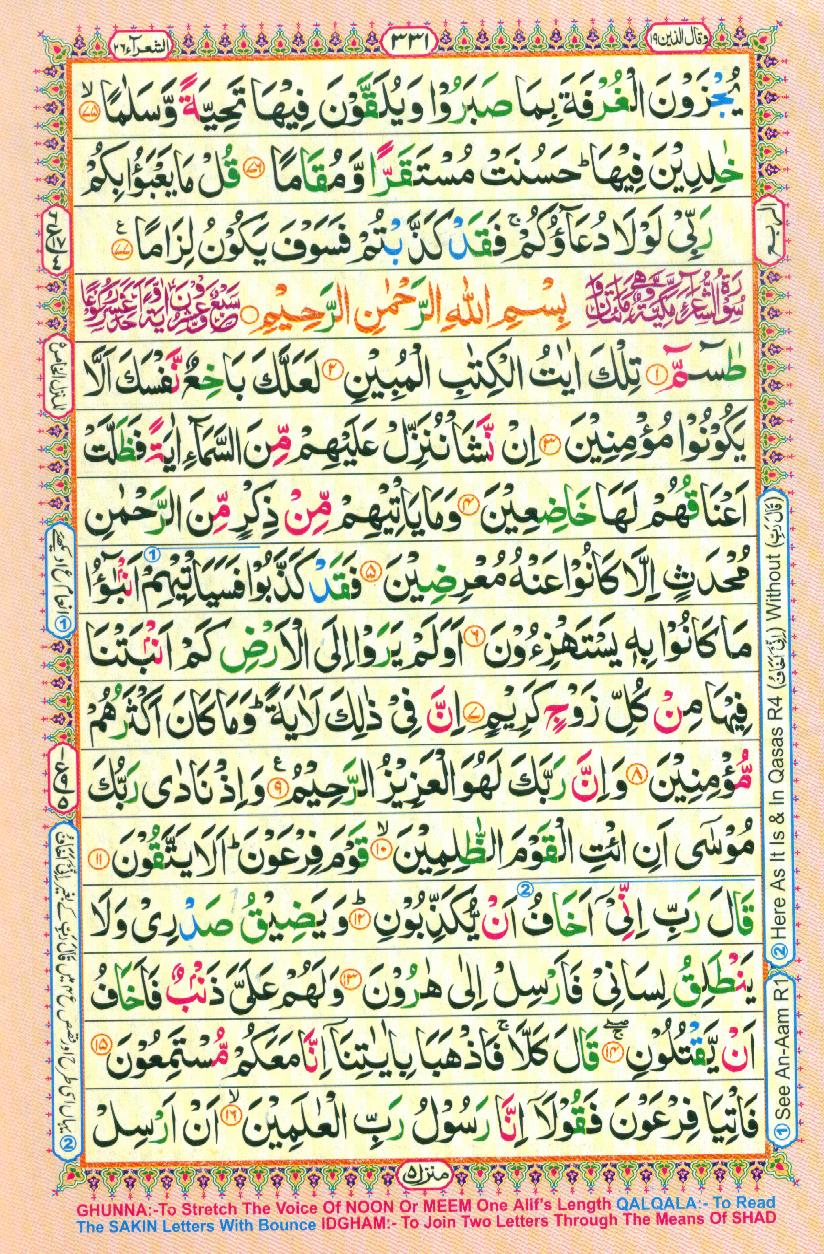 وقال الذین ۱۹
۳۳۱
الشعرآء ۲۶
یُجْزَوْنَ الْغُرْفَةَ بِمَا صَبَرُوْا وَیُلَقَّوْنَ فِیْهَا تَحِیَّةً وَّسَلٰمًا ﴿۷۵﴾ۙ
خٰلِدِیْنَ فِیْهَا ؕ حَسُنَتْ مُسْتَقَرًّا وَّمُقَامًا ﴿۷۶﴾ قُلْ مَا یَعْبَؤُا بِكُمْ
رَبِّیْ لَوْلَا دُعَآؤُكُمْ ۚ فَقَدْ كَذَّبْتُمْ فَسَوْفَ یَكُوْنُ لِزَامًا ﴿۷۷﴾
بِسْمِ اللهِ الرَّحْمٰنِ الرَّحِیْمِ
طٰسٓمّٓ ﴿۱﴾ تِلْكَ اٰیٰتُ الْكِتٰبِ الْمُبِیْنِ ﴿۲﴾ لَعَلَّكَ بَاخِعٌ نَّفْسَكَ اَلَّا
یَكُوْنُوْا مُؤْمِنِیْنَ ﴿۳﴾ اِنْ نَّشَاْ نُنَزِّلْ عَلَیْهِمْ مِّنَ السَّمَآءِ اٰیَةً فَظَلَّتْ
اَعْنَاقُهُمْ لَهَا خَاضِعِیْنَ ﴿۴﴾ وَمَا یَاْتِیْهِمْ مِّنْ ذِكْرٍ مِّنَ الرَّحْمٰنِ
مُحْدَثٍ اِلَّا كَانُوْا عَنْهُ مُعْرِضِیْنَ ﴿۵﴾ فَقَدْ كَذَّبُوْا فَسَیَاْتِیْهِمْ اَنْۢبٰٓؤُا
مَا كَانُوْا بِهٖ یَسْتَهْزِءُوْنَ ﴿۶﴾ اَوَلَمْ یَرَوْا اِلَی الْاَرْضِ كَمْ اَنْۢبَتْنَا
فِیْهَا مِنْ كُلِّ زَوْجٍ كَرِیْمٍ ﴿۷﴾ اِنَّ فِیْ ذٰلِكَ لَاٰیَةً ؕ وَمَا كَانَ اَكْثَرُهُمْ
مُّؤْمِنِیْنَ ﴿۸﴾ وَاِنَّ رَبَّكَ لَهُوَ الْعَزِیْزُ الرَّحِیْمُ ﴿۹﴾ وَاِذْ نَادٰی رَبُّكَ
مُوْسٰۤی اَنِ ائْتِ الْقَوْمَ الظّٰلِمِیْنَ ﴿۱۰﴾ۙ قَوْمَ فِرْعَوْنَ ؕ اَلَا یَتَّقُوْنَ ﴿۱۱﴾
قَالَ رَبِّ اِنِّیْۤ اَخَافُ اَنْ یُّكَذِّبُوْنِ ﴿۱۲﴾ؕ وَیَضِیْقُ صَدْرِیْ وَلَا
یَنْطَلِقُ لِسَانِیْ فَاَرْسِلْ اِلٰی هٰرُوْنَ ﴿۱۳﴾ وَلَهُمْ عَلَیَّ ذَنْۢبٌ فَاَخَافُ
اَنْ یَّقْتُلُوْنِ ﴿۱۴﴾ۚ قَالَ كَلَّا ۚ فَاذْهَبَا بِاٰیٰتِنَاۤ اِنَّا مَعَكُمْ مُّسْتَمِعُوْنَ ﴿۱۵﴾
فَاْتِیَا فِرْعَوْنَ فَقُوْلَاۤ اِنَّا رَسُوْلُ رَبِّ الْعٰلَمِیْنَ ﴿۱۶﴾ۙ اَنْ اَرْسِلْ
① See An-Aam R1
② Here As It Is & In Qasas R4 (اِنِّیْۤ اَخَافُ) Without (قَالَ رَبِّ)
منزل ۵
GHUNNA:-To Stretch The Voice Of NOON Or MEEM One Alif's Length QALQALA:- To Read
The SAKIN Letters With Bounce IDGHAM:- To Join Two Letters Through The Means Of SHAD